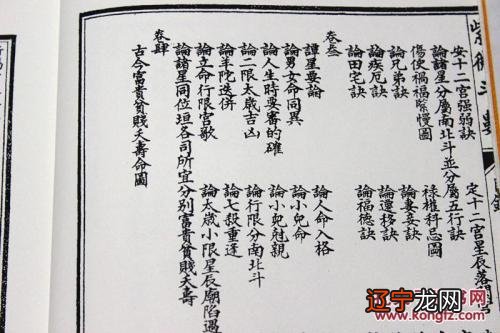 紫微
安十二宮强弱訣 定十二宮星辰落
論諸星分屬南北斗並分屬五行訣
傷使禍福緊慢圖 祿權科忌圖
論兄弟訣 論妻妾訣
論疾厄訣 論遷移訣
論田宅訣 論福德訣
卷叁
譚星要論 論人命入格
論男女命同異 論小兒命
論人生時要審的確 論小兒尅親
論二限太歲吉凶 論行限分南北斗
論羊陀迭併 論七殺重逢
論立命行限宮歌 論太歲小限星辰廟陷遇
論諸星同位垣各司所宜分別富貴貧賤夭壽
卷肆
古今富貴貧賤夭壽命圖
辽宁龙网
书网
kongfz.com